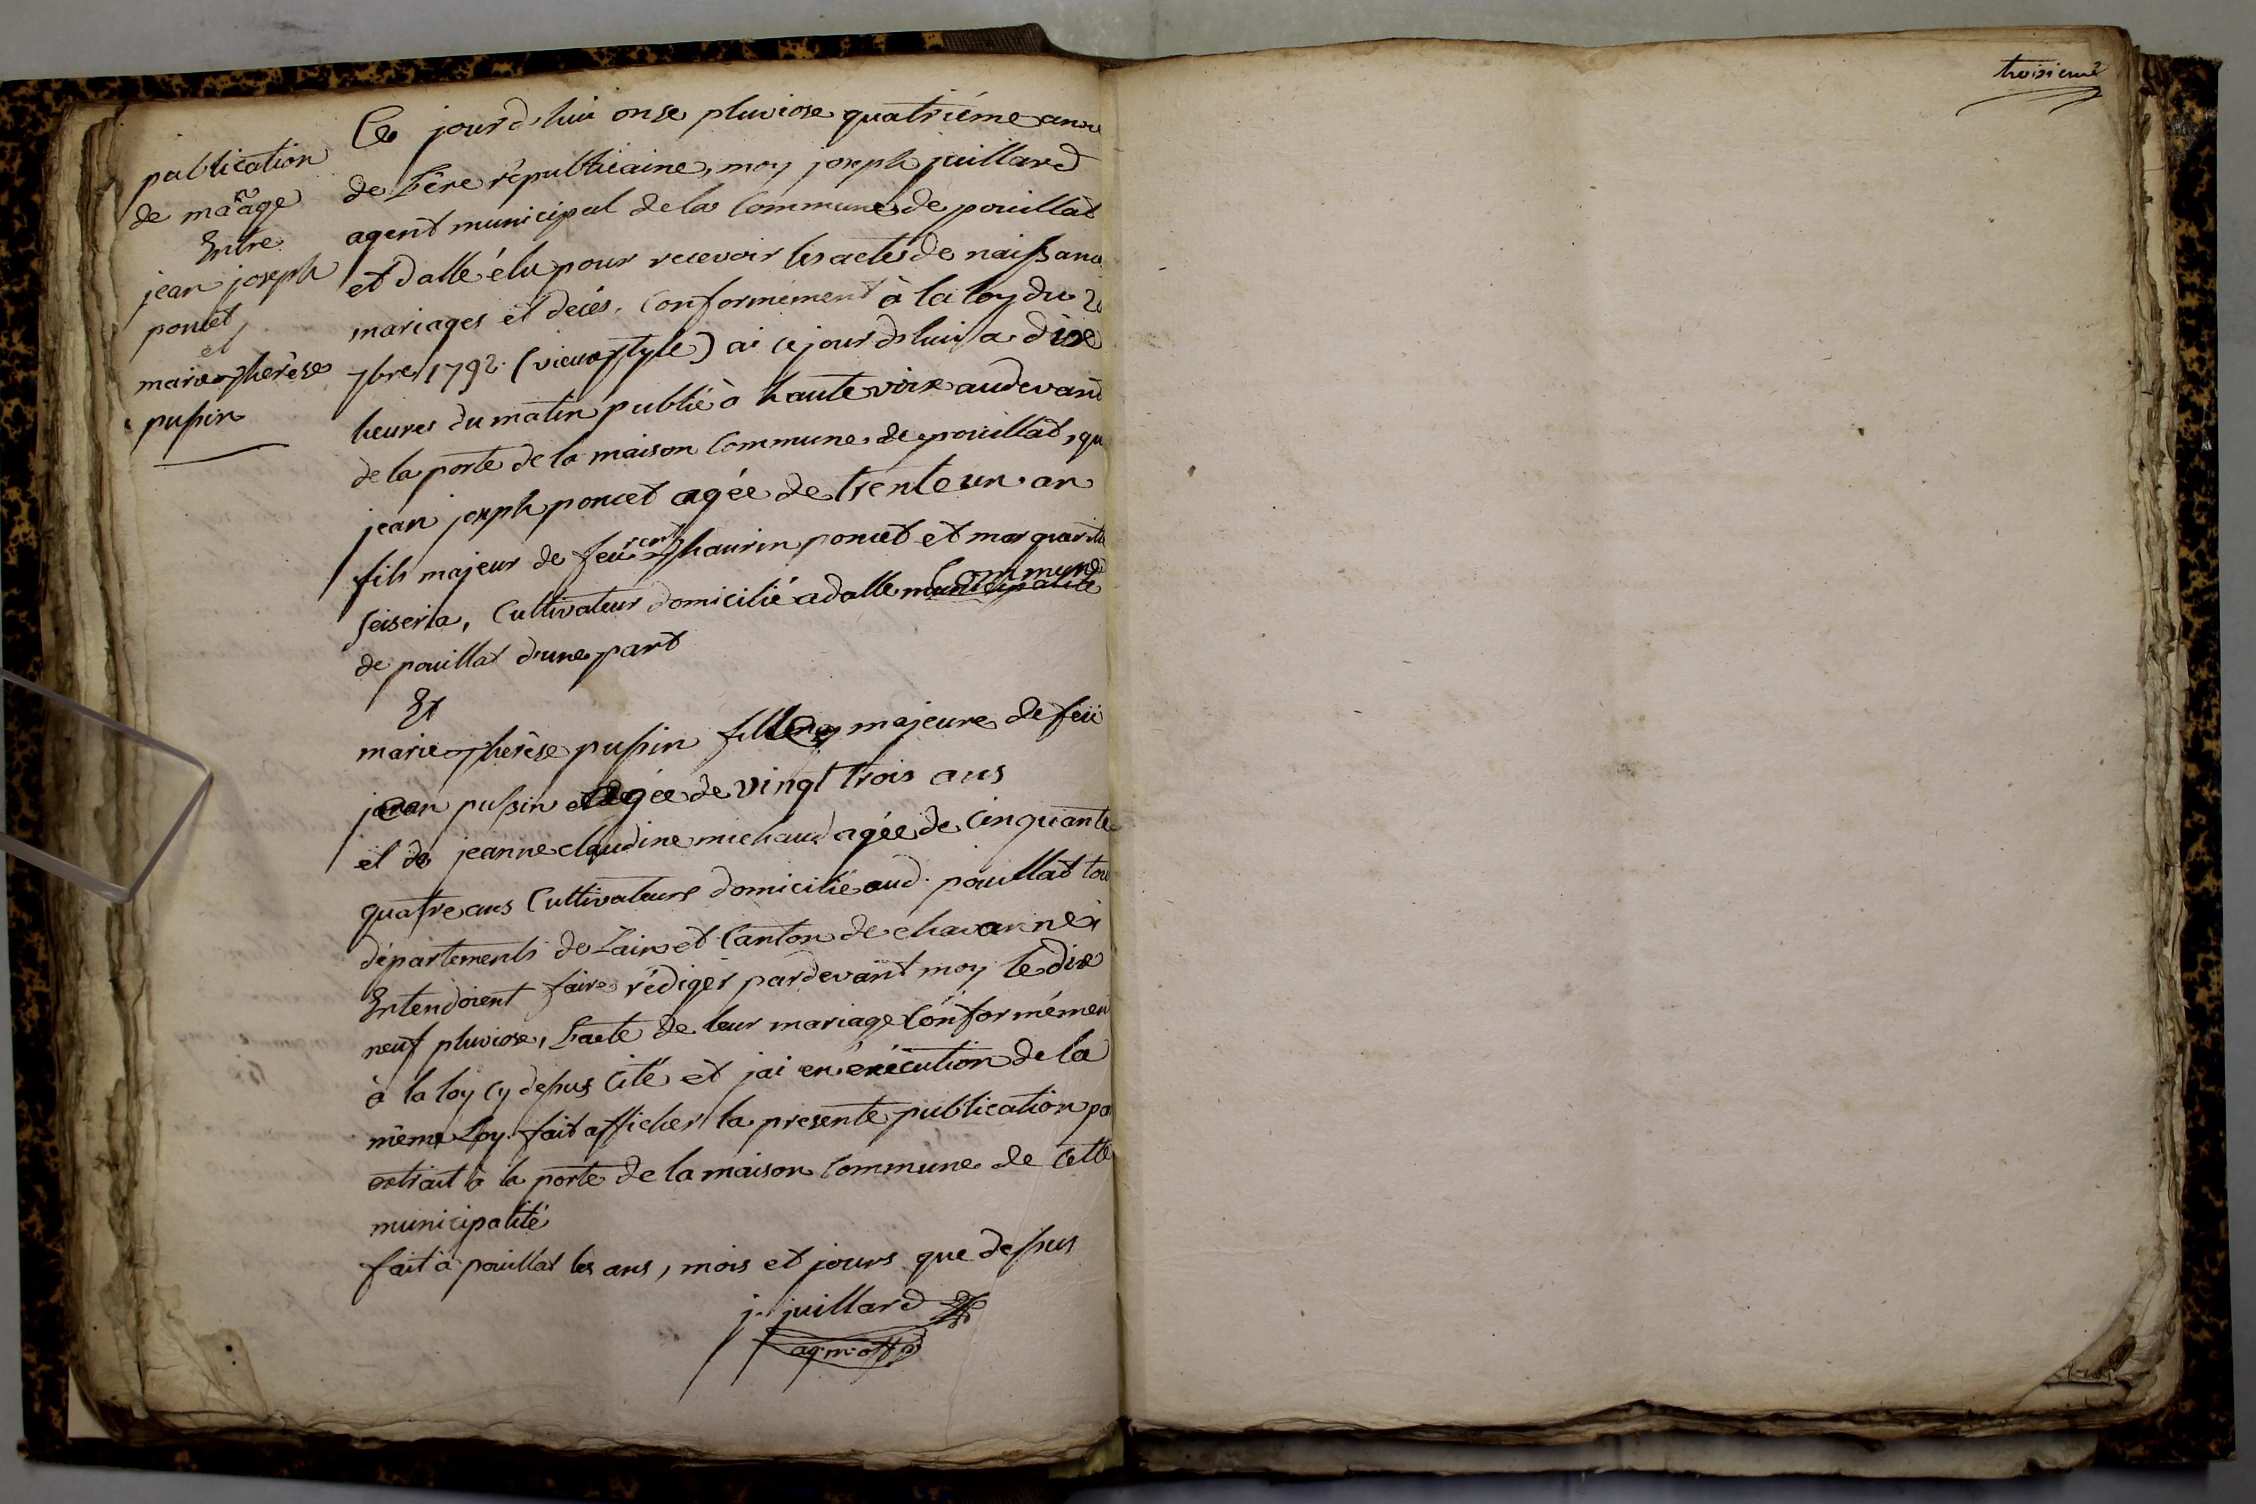 publication
de mãage
Entre
jean joseph
poncet
et
marie therèse
pussin
Ce jourd'hui onse pluviose quatriéme anne
de L'ère républicaine, moy joseph juillard
agent municipal de la Commune de pouillat
et dalle élu pour recevoir les actes de naissanc
mariages et decés, Conformément à la loy du 20
7bre 1792. (vieux style) ai ce jourd'hui a dixe
heures du matin publié à haute voix audevant
de la porte de la maison Commune de pouillat, qu
jean joseph poncet agée de trente un an
fils majeur de feu thaurin poncet et marguerite
seiseria, Cultivateur domicilié a dalle municipalité Commune
de pouillat d'une part
Et
marie therèse pussin fille majeure de feü
jean pussin agée de vingt trois ans
et de jeanne claudine michaud agée de Cinquante
quatre ans Cultivateurs domicilié aud. pouillat tou
départements de Lain et Canton de chavannes
Entendoient faire rédiger pardevant moy le dixe
neuf pluviose, L'acte de leur mariage Conformémen
à la loy cy dessus Cité et jai en éxécution de la
même Loy fait afficher la presente publication pa
extrait à la porte de la maison Commune de Cette
municipalité
fait à pouillat les ans, mois et jours que dessus
j. juillard
ag. m. off. p
troisieme